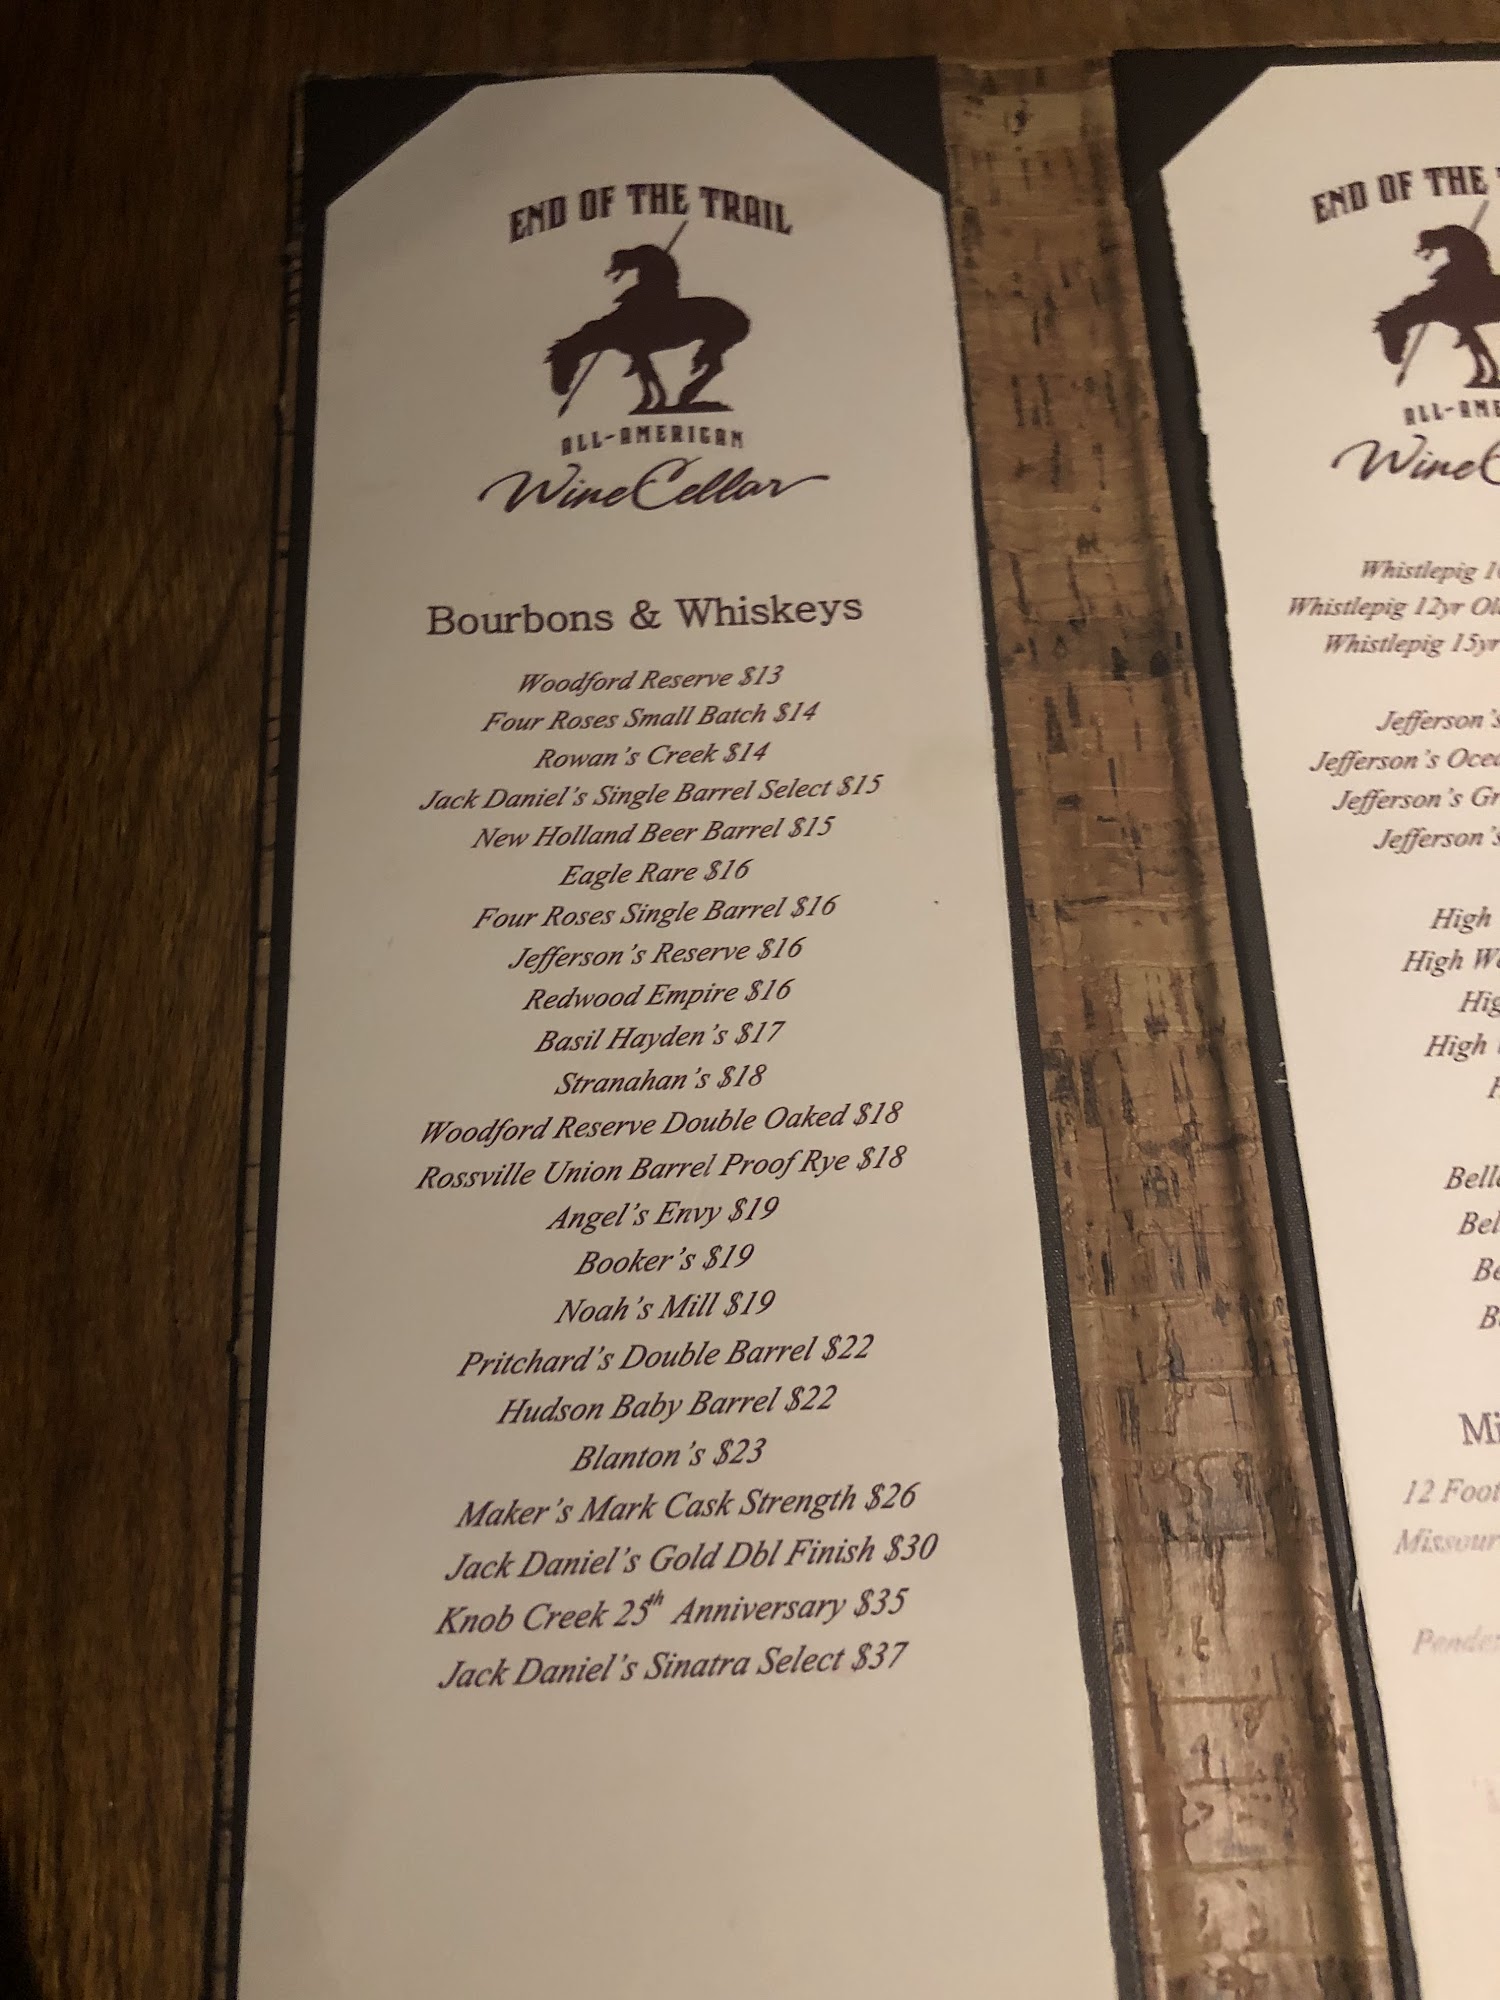 END OF THE TRAIL
ALL-AMERICAN
Wine Cellar
Bourbons & Whiskeys
Woodford Reserve $13
Four Roses Small Batch $14
Rowan's Creek $14
Jack Daniel's Single Barrel Select $15
New Holland Beer Barrel $15
Eagle Rare $16
Four Roses Single Barrel $16
Jefferson's Reserve $16
Redwood Empire $16
Basil Hayden's $17
Stranahan's $18
Woodford Reserve Double Oaked $18
Rossville Union Barrel Proof Rye $18
Angel's Envy $19
Booker's $19
Noah's Mill $19
Pritchard's Double Barrel $22
Hudson Baby Barrel $22
Blanton's $23
Maker's Mark Cask Strength $26
Jack Daniel's Gold Dbl Finish $30
Knob Creek 25th Anniversary $35
Jack Daniel's Sinatra Select $37
END OF THE
Wine
Whistlepig
Whistlepig 12yr
Whistlepig 15yr
Jefferson's
Jefferson's
Jefferson's
Jefferson's
High
High
High
12 Foot